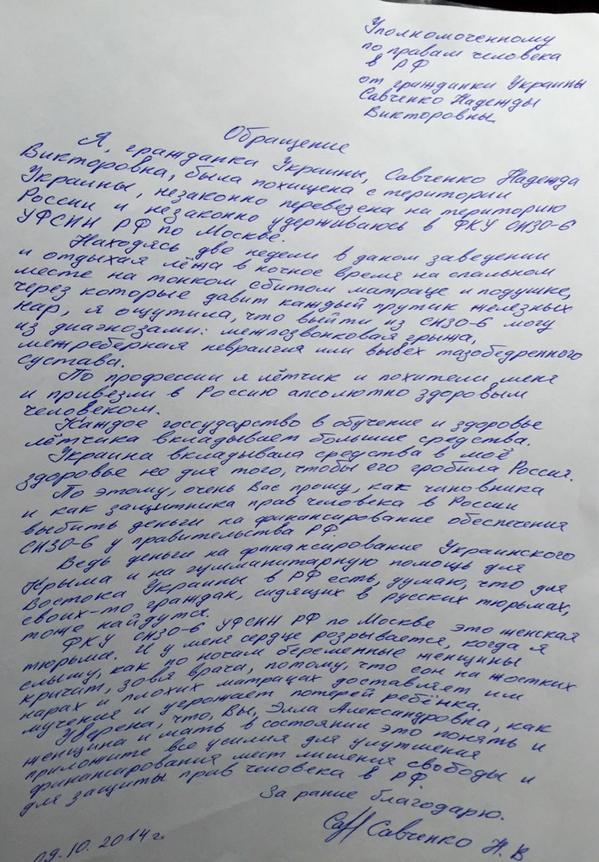 Уполномоченному
по правам человека
в РФ
от гражданки Украины
Савченко Надежды
Викторовны
Обращение
Я, гражданка Украины, Савченко Надежда
Викторовна, была похищена с територии
Украины, незаконно перевезена на територию
России и незаконно удерживаюсь в ФКУ СИЗО-6
УФСИН РФ по Москве.
Находясь две недели в даном заведении
и отдыхая лёжа в ночное время на спальном
месте на тонком сбитом матраце и подушке,
через которые давит каждый прутик железных
нар, я ощутила, что выйти из СИЗО-6 могу
из диагнозами: межпозвонковая грыжа,
межреберная невралгия или вывех тазобедренного
сустава.
По профессии я лётчик и похители меня
и привезли в Россию апсолютно здоровым
человеком.
Каждое госсударство в обучение и здоровье
лётчика вкладывает большие средства.
Украина вкладывала средства в моё
здоровье не для того, чтобы его гробила Россия.
По этому, очень Вас прошу, как чиновника
и как защитника прав человека в России
выбить деньги на финансирование обеспечения
СИЗО-6 у правительства РФ.
Ведь деньги на финансирование Украинского
Крыма и на гумманитарную помощь для
Востока Украины в РФ есть, думаю, что для
своих-то граждан, сидящих в русских тюрьмах,
тоже найдутся.
ФКУ СИЗО-6 УФСИН РФ по Москве это женская
тюрьма. И у меня сердце розрывается, когда я
слышу, как по ночам беременные женщины
кричат, зовя врача, потому, что сон на жостких
нарах и плохих матрацах доставляет им
мучение и угрожает потерей ребёнка.
Уверена, что, Вы, Элла Александровна, как
женщина и мать в состоянии это понять и
приложите все усилия для улутшения
финансирования мест лишения свободы и
для защиты прав человека в РФ.
За рание благодарю.
Савченко Н. В
09.10.2014г.